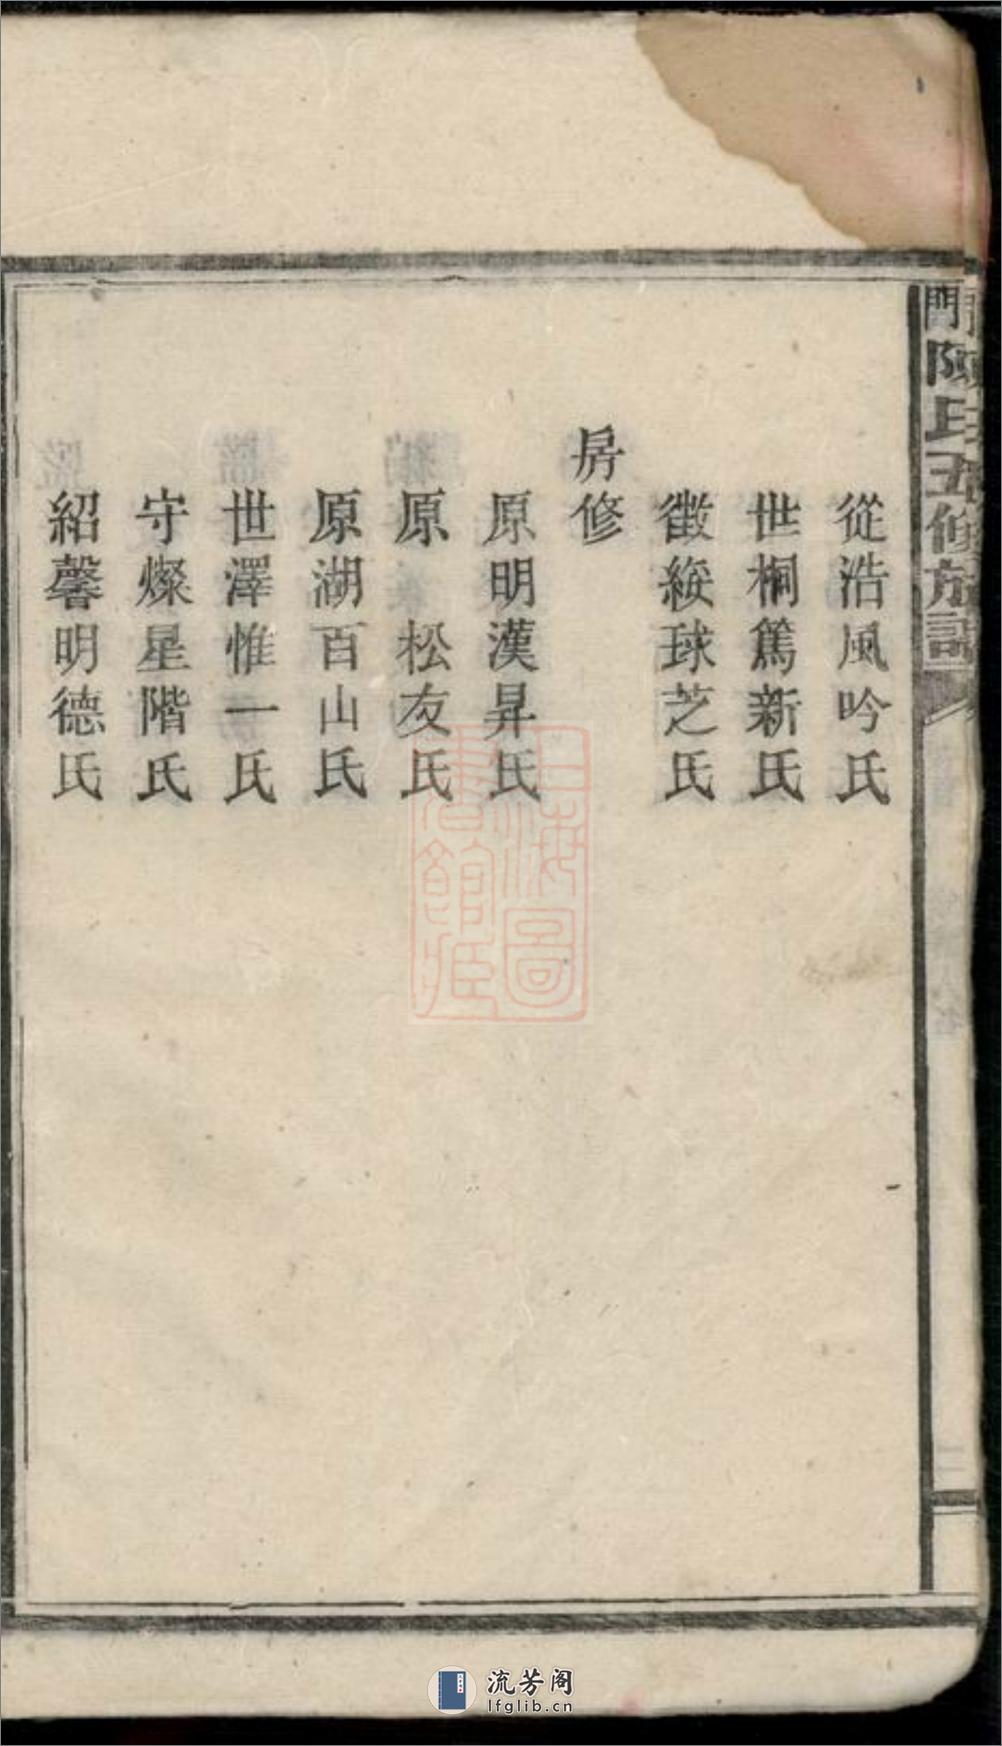 門陳氏五修族譜
從浩風吟氏
世桐篤新氏
徵綏球芝氏
房修
原明漢昇氏
原 松友氏
原湖百山氏
世澤惟一氏
守燦星階氏
紹馨明德氏
上海圖
書館藏
流芳阁
lfglib.cn